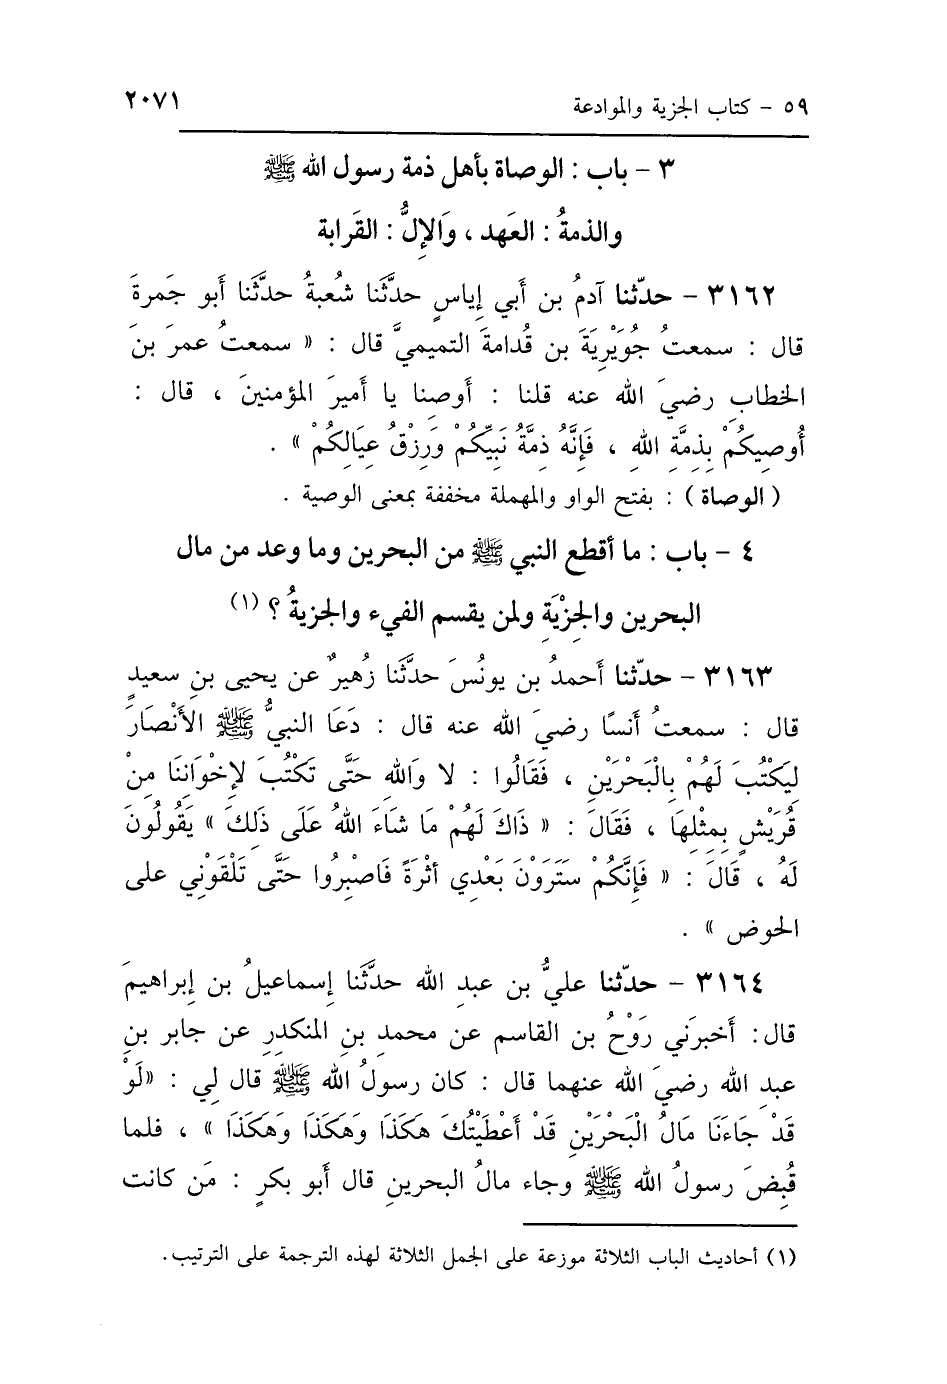 ٥٩ - كتاب الجزية والموادعة ٢٠٧١
٣ - باب : الوصاة بأهل ذمة رسول الله ﷺ
والذمةُ : العَهد ، وَالإِلُّ : القَرابة
٣١٦٢ - حدّثنا آدمُ بن أبي إياسٍ حدَّثَنا شُعبةُ حدَّثَنا أبو جَمرةَ
قال : سمعتُ جُوَيْرِيَةَ بن قُدامةَ التميميَّ قال : « سمعتُ عمرَ بن
الخطابِ رضيَ الله عنه قلنا : أَوصِنا يا أميرَ المؤمنينَ ، قال :
أُوصِيكُمْ بِذِمَّةِ اللهِ ، فَإِنَّهُ ذِمَّةُ نَبِيِّكُمْ وَرِزْقُ عِيَالِكُمْ » .
( الوصاة ) : بفتح الواو والمهملة مخففة بمعنى الوصية .
٤ - باب : ما أقطع النبي ﷺ من البحرين وما وعد من مال
البحرين والجِزْيَةِ ولمن يقسم الفيء والجزيةُ ؟ (١)
٣١٦٣ - حدّثنا أحمدُ بن يونُسَ حدَّثَنا زُهيرٌ عن يحيى بنِ سعيدٍ
قال : سمعتُ أنسًا رضيَ الله عنه قال : دَعَا النبيُّ ﷺ الأَنْصَارَ
لِيَكْتُبَ لَهُمْ بِالْبَحْرَيْنِ ، فَقَالُوا : لا وَاللهِ حَتَّى تَكْتُبَ لإِخْوَانِنَا مِنْ
قُرَيْشٍ بِمِثْلِهَا ، فَقَالَ : « ذَاكَ لَهُمْ مَا شَاءَ اللهُ عَلَى ذَلِكَ » يَقُولُونَ
لَهُ ، قَالَ : « فَإِنَّكُمْ سَتَرَوْنَ بَعْدِي أثْرَةً فَاصْبِرُوا حَتَّى تَلْقَوْنِي على
الحوض » .
٣١٦٤ - حدّثنا عليُّ بن عبدِ الله حدَّثَنا إسماعيلُ بن إبراهيمَ
قال: أخبرَني رَوْحُ بن القاسم عن محمدِ بنِ المنكدرِ عن جابر بنِ
عبدِ الله رضيَ الله عنهما قال : كان رسولُ الله ﷺ قال لِي : «لَوْ
قَدْ جَاءَنَا مَالُ الْبَحْرَيْنِ قَدْ أَعْطَيْتُكَ هَكَذَا وَهَكَذَا وَهَكَذَا » ، فلما
قُبِضَ رسولُ الله ﷺ وجاء مالُ البحرينِ قال أبو بكرٍ : مَن كانت
(١) أحاديث الباب الثلاثة موزعة على الجمل الثلاثة لهذه الترجمة على الترتيب.